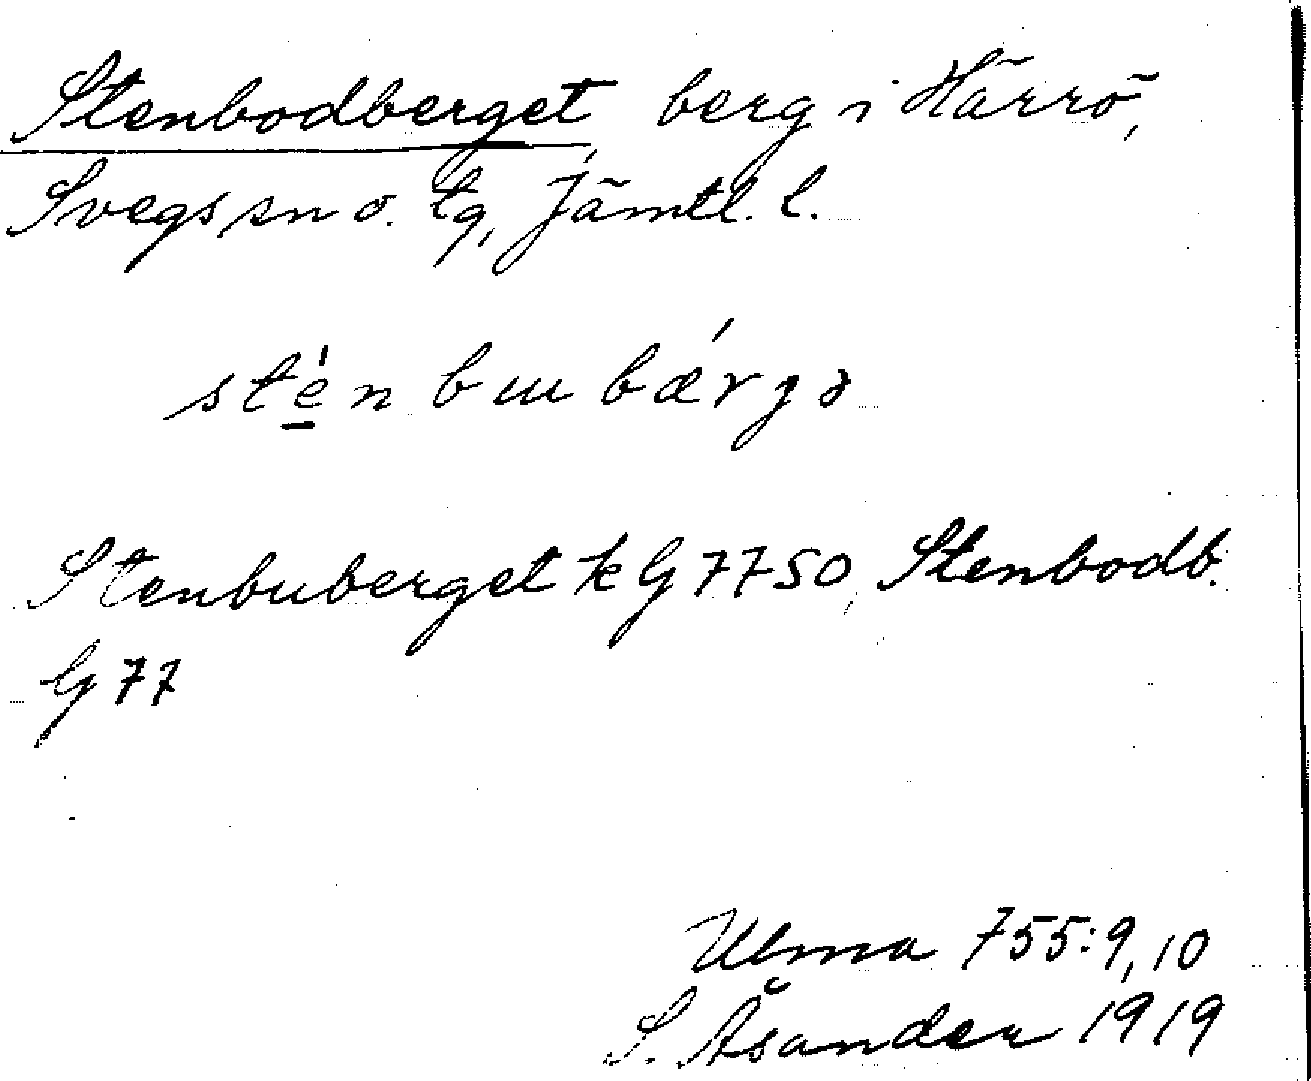 Stenbodberget, berg i Härrö,
Svegs sn o. tg, Jämtl. l.
sté̱n bɯ bǽrgə
Stenbuberget kG 7750, Stenbodb.
G 77
Ulma 755:9,10
S. Åsander 1919